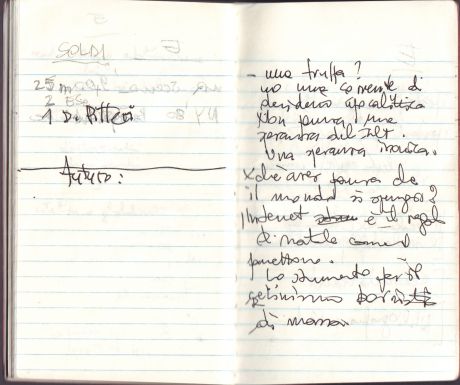 SOLDI
25 m
2 ESC
1 DI
Auturo:
- una truffa?
no una corrente di
desiderio apocalittica
Non paura, una
speranza del
Una speranza ironica.
xchè aver paura che
il mondo si spenga?
Internet è il regalo
di natale come il
panettone.
Lo strumento per il
di massa